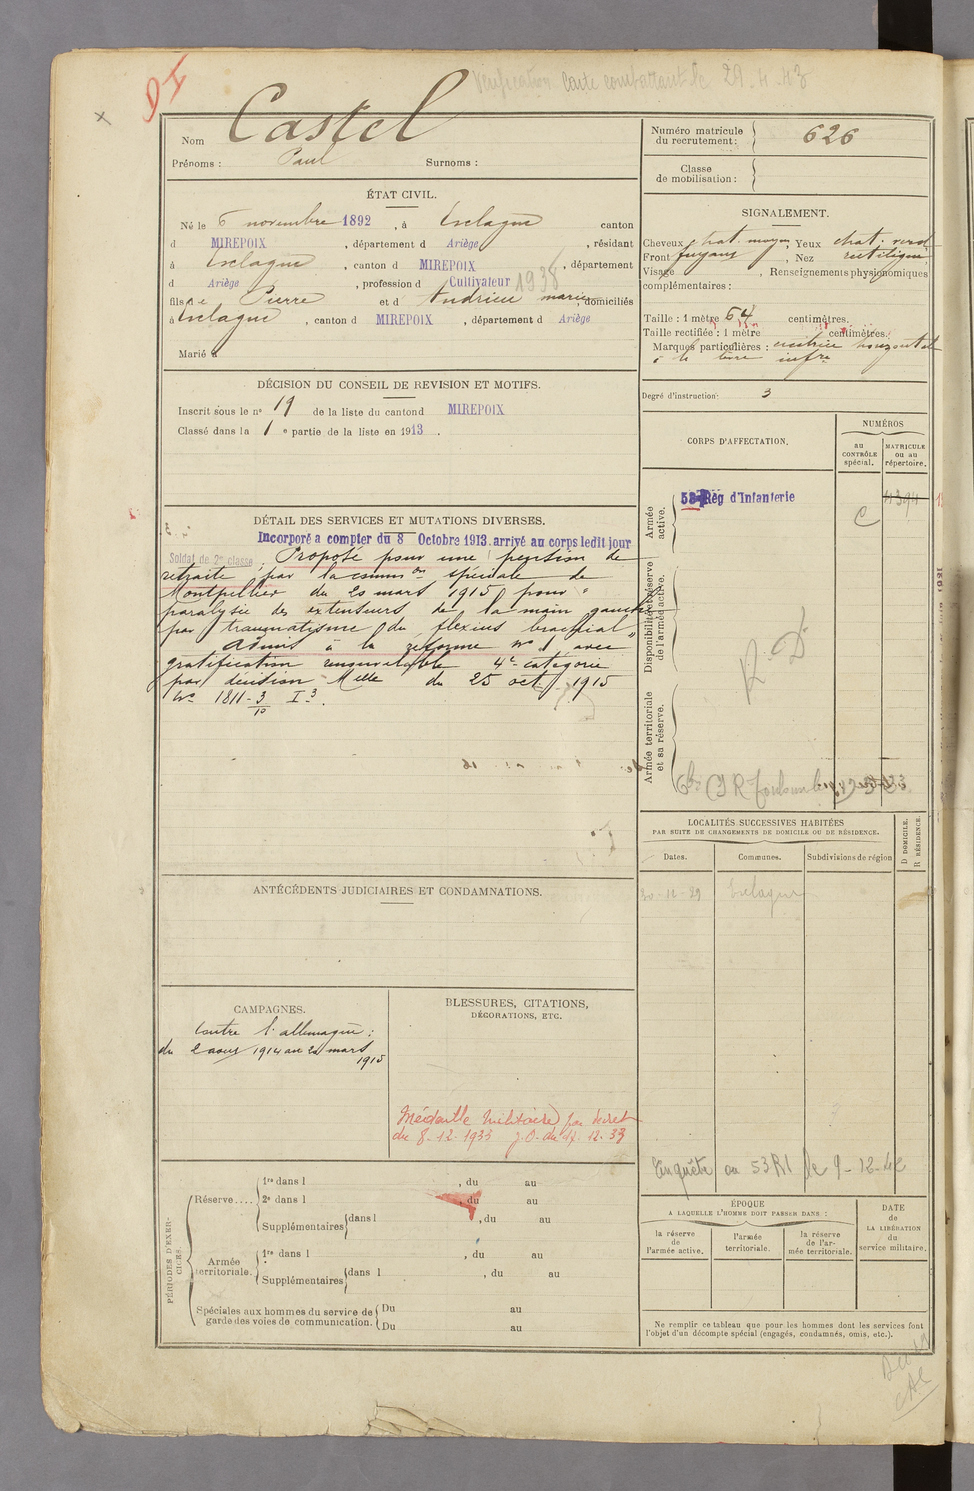 94
Vérification Carte combattant le 29.4.43
Nom Castel
Prénoms : Paul Surnoms :
Numéro matricule du recrutement : 626
Classe de mobilisation :
ÉTAT CIVIL.
Né le 6 novembre 1892, à Esclagne canton
d MIREPOIX, département d Ariège, résidant
à Esclagne, canton d MIREPOIX, département
d Ariège, profession d Cultivateur 1938
fils de Pierre et d Andrieu marie, domiciliés
à Esclagne, canton d MIREPOIX, département d Ariège
Marié à
SIGNALEMENT.
Cheveux chat. moyen, Yeux chat. verd
Front fuyant, Nez rectiligne
Visage , Renseignements physionomiques
complémentaires :
Taille : 1 mètre 64 centimètres.
Taille rectifiée : 1 mètre centimètres.
Marques particulières : cicatrice horizontale
à la lèvre infre
Degré d'instruction : 3
DÉCISION DU CONSEIL DE REVISION ET MOTIFS.
Inscrit sous le n° 19 de la liste du canton d MIREPOIX
Classé dans la 1 e partie de la liste en 1913.
DÉTAIL DES SERVICES ET MUTATIONS DIVERSES.
Incorporé a compter du 8 Octobre 1913. arrivé au corps ledit jour
Soldat de 2e classe. Proposé pour une pension de
retraite par la common spéciale de
Montpellier du 20 mars 1915 pour "
paralysie des extenseurs de la main gauche
par traumatisme du flexius brachial "
Admis à la réforme n° 1 avec
gratification renouvelable 4e catégorie
par décision Mlle du 25 oct. 1915
No 1811-3/10 I3.
CORPS D'AFFECTATION.
NUMÉROS
au CONTRÔLE spécial.
MATRICULE ou au répertoire.
Armée active.
53e Rég d'Infanterie
Disponibilité et réserve de l'armée active.
R. D
Armée territoriale et sa réserve.
LOCALITÉS SUCCESSIVES HABITÉES
PAR SUITE DE CHANGEMENTS DE DOMICILE OU DE RÉSIDENCE.
Dates. Communes. Subdivisions de région
D DOMICILE.
R RÉSIDENCE.
Esclagne
ANTÉCÉDENTS JUDICIAIRES ET CONDAMNATIONS.
CAMPAGNES.
Contre l'allemagne :
du 2 aout 1914 au 20 mars
1915
BLESSURES, CITATIONS,
DÉCORATIONS, ETC.
Médaille militaire par décret
du 8-12-1933 J.O. du 17.12.33
Enquête au 53 RI le 9-12-42
PÉRIODES D'EXERCICES.
Réserve....
1re dans l , du au
2e dans l , du au
Supplémentaires dans l , du au
Armée territoriale.
1re dans l , du au
Supplémentaires dans l , du au
Spéciales aux hommes du service de garde des voies de communication.
Du au
Du au
ÉPOQUE
A LAQUELLE L'HOMME DOIT PASSER DANS :
la réserve de l'armée active.
l'armée territoriale.
la réserve de l'armée territoriale.
DATE de LA LIBÉRATION du service militaire.
Ne remplir ce tableau que pour les hommes dont les services font
l'objet d'un décompte spécial (engagés, condamnés, omis, etc.).